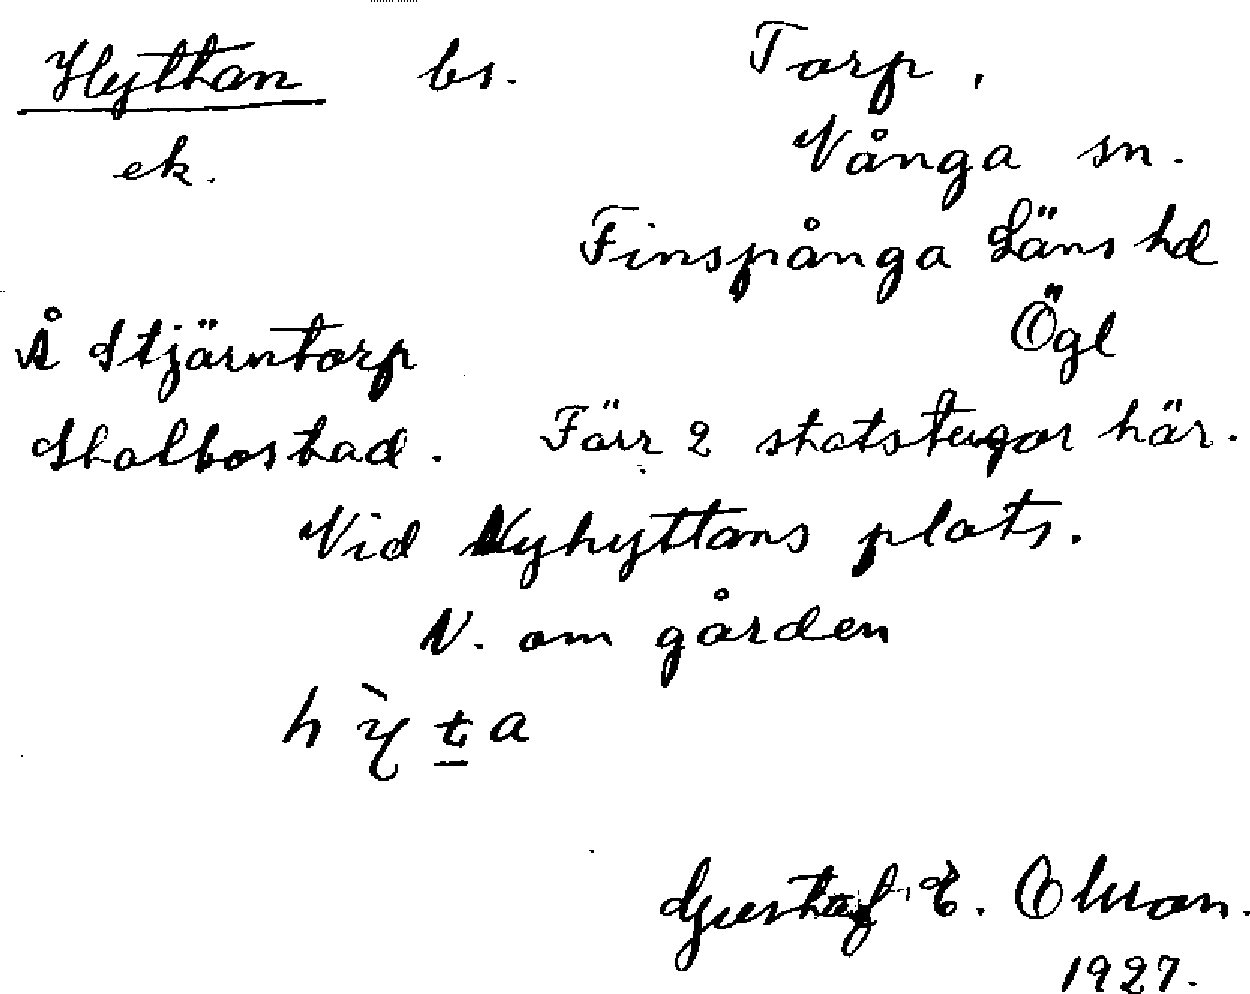 Hyttan bs. Torp.
ek. Vånga sn.
Finspånga Läns hd
Ögl
Å Stjärntorp
Skolbostad. Förr 2 statstugor här.
Vid Nyhyttans plats.
N. om gården
hỳta
Gustaf E. Olsson.
1927.